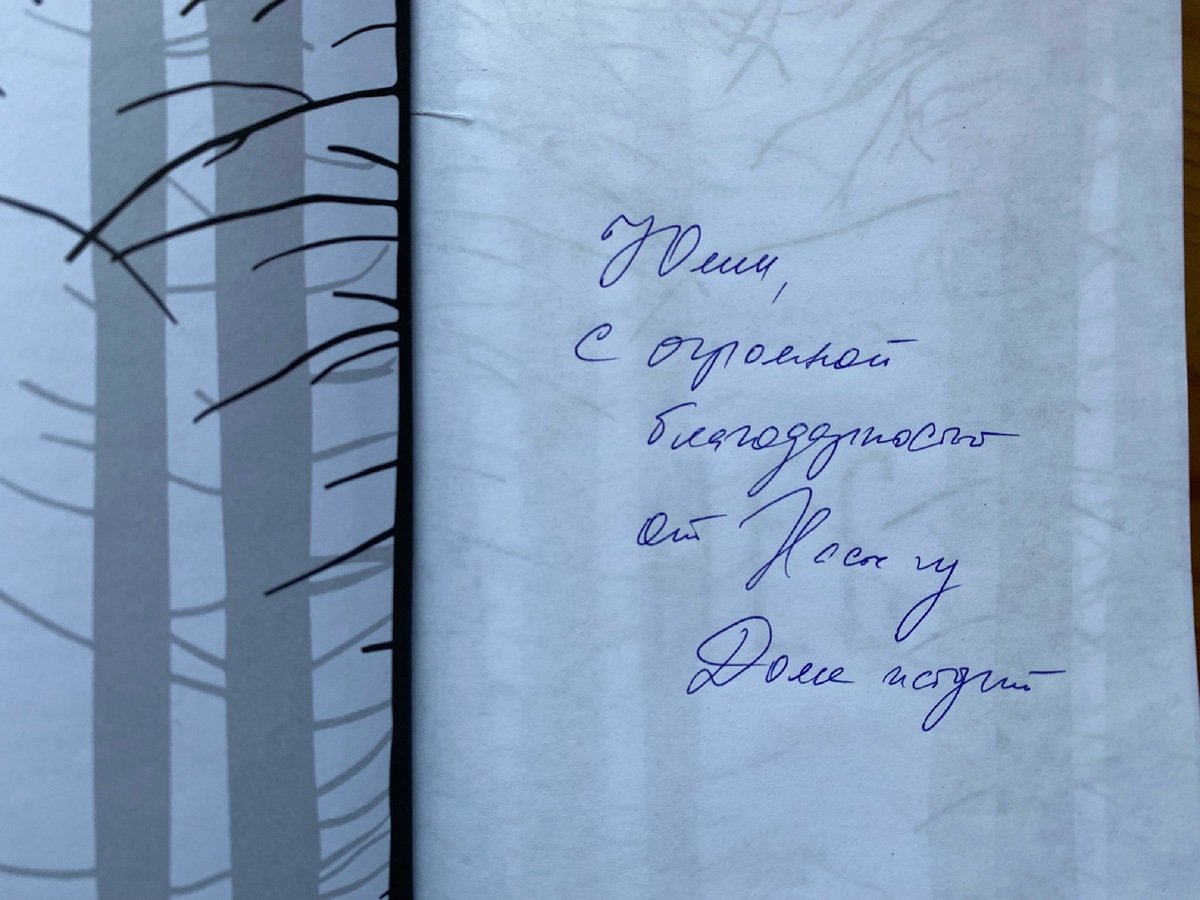 Юлии,
с огромной
благодарностью
от Насти из
Дома историй